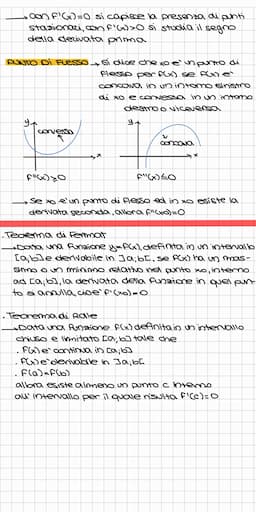 → con f'(x)=0 si capisce la presenza di punti
stazionari, con f'(x)>0 si studia il segno
della derivata prima.
PUNTO DI FLESSO → si dice che xo e' un punto di
flesso per f(x) se f(x) e'
concava in un intorno sinistro
di xo e convessa in un intorno
destro o viceversa.
y
convessa
x
f''(x)≥0
y
concava
x
f''(x)≤0
→ se xo e' un punto di flesso ed in xo esiste la
derivata seconda, allora f''(xo)=0
. Teorema di Fermat
→ Data una funzione y=f(x), definita in un intervallo
[a,b] e derivabile in ]a,b[, se f(x) ha un mas-
simo o un minimo relativo nel punto xo, interno
ad [a,b], la derivata della funzione in quel pun-
to si annulla, cioe' f'(xo)=0
. Teorema di Rolle
→ Data una funzione f(x) definita in un intervallo
chiuso e limitato [a,b] tale che
. f(x) e' continua in [a,b]
. f(x) e' derivabile in ]a,b[
. f(a)=f(b)
allora esiste almeno un punto c interno
all'intervallo per il quale risulta f'(c)=0